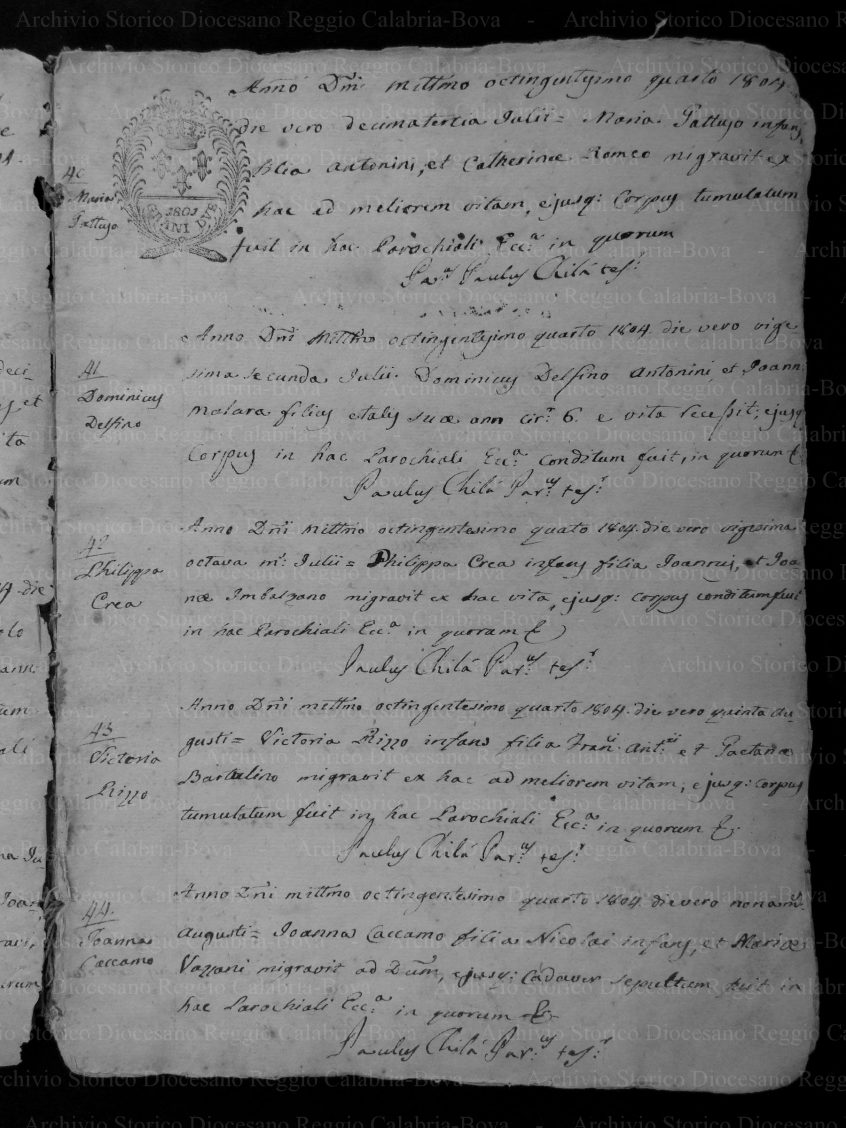 Anno Dñi millmo octingentesimo quarto 1804.
die vero decimatertia Julii = Maria Pattujo infans,
40
Maria
Pattujo
1801
GRANI DVE
filia Antonini, et Catherinæ Romeo migravit ex
hac ad meliorem vitam, ejusq: Corpus tumulatum
fuit in hac Parochiali Ecc.a in quorum
Par.us Paulus Chilá tes.r
41
Dominicus
Delfino
Anno Dñi millmo octingentesimo quarto 1804. die vero vige
sima secunda Julii Dominicus Delfino Antonini, et Joann.
Malara filius etatis suæ ann cir.r 6. e vita recessit; ejusq
Corpus in hac Parochiali Ecc.a conditum fuit, in quorum &.
Paulus Chilá Par.us tes.r
42
Philippa
Crea
Anno Dñi millmo octingentesimo quato 1804. die vero vigesima
octava m.s Julii = Philippa Crea infans filia Joannis, et Joa
næ Imbalzano migravit ex hac vita, ejusq: corpus conditum fuit
in hac Parochiali Ecc.a in quoram &)
Paulus Chilá Par.us tes.r
43
Victoria
Rizzo
Anno Dñi millmo octingentesimo quarto 1804. die vero quinta Au
gusti = Victoria Rizzo infans filia Fran.i Ant.ii et Gaetanæ
Barbulino migravit ex hac ad meliorem vitam, ejusq: corpus
tumulatum fuit in hac Parochiali Ecc.a in quorum &.
Paulus Chilá Par.us tes.r
44
Joanna
Caccamo
Anno Dñi millmo octingentesimo quarto 1804. die vero nona m.s
Augusti = Joanna Caccamo filia Nicolai infans, et Mariæ
Vazzani migravit ad Dūm, ejusq: Cadaver sepultum fuit in
hac Parochiali Ecc.a in quorum &.
Paulus Chilá Par.us tes.r
Archivio Storico Diocesano Reggio Calabria-Bova